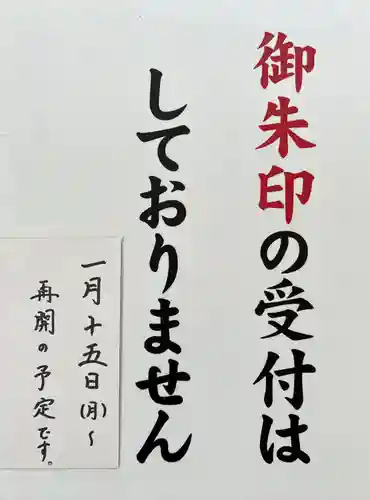 御朱印の受付は
しておりません
一月十五日(月)~
再開の予定です。